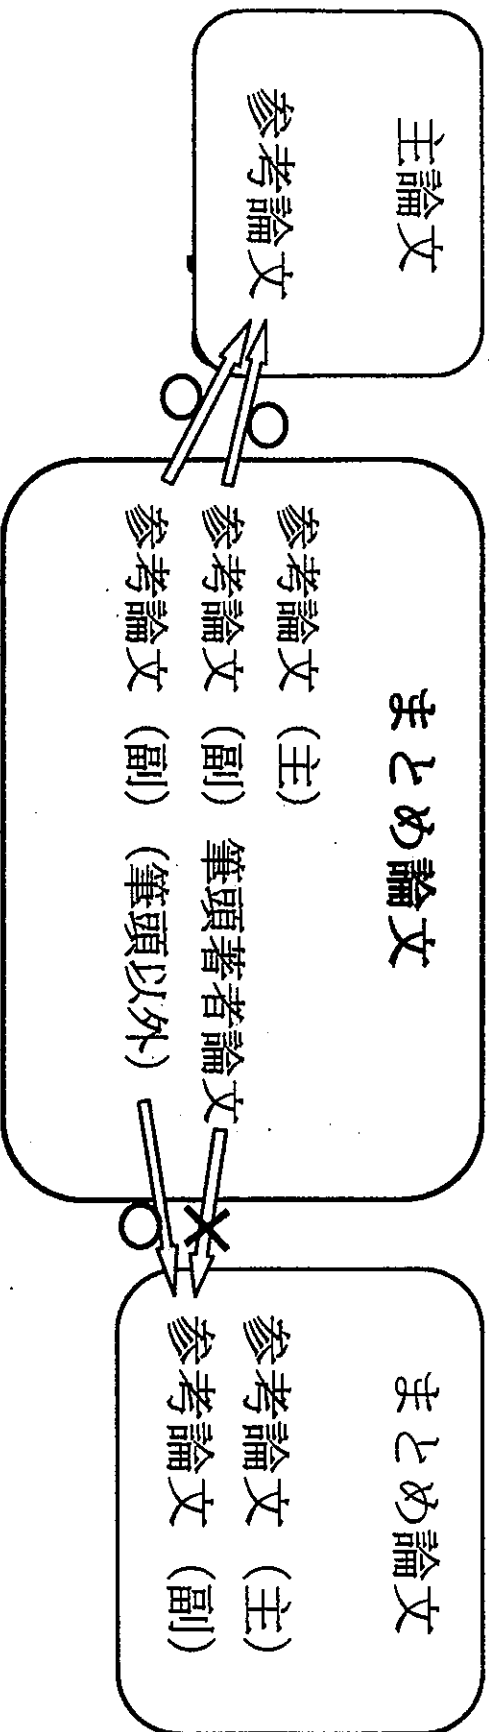 主論文
参考論文
○
○
まとめ論文
参考論文 (主)
参考論文 (副) 筆頭著者論文
参考論文 (副) (筆頭以外)
×
○
まとめ論文
参考論文 (主)
参考論文 (副)